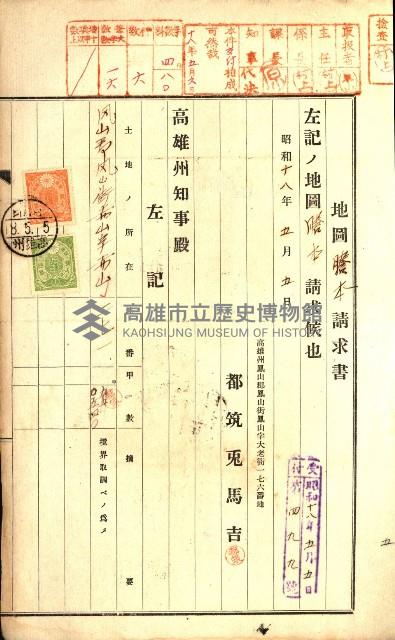 地圖謄本請求書
左記ノ地圖謄本請求候也
昭和十八年五月五日
高雄州鳳山郡鳳山街鳳山字大老衙一七六番地
都筑兎馬吉
高雄州知事殿
左記
土地ノ所在
番
甲數
摘要
境界取調ベノ為メ
受付
昭和十八年五月五日
第四九九號
檢查
取扱者
主任
課長
知事代決
本件交付相成可然哉
十八年五月六日
手數料
四八〇
枚數
六
筆數
一六
8.5.5
高雄市立歷史博物館
KAOHSIUNG MUSEUM OF HISTORY
五